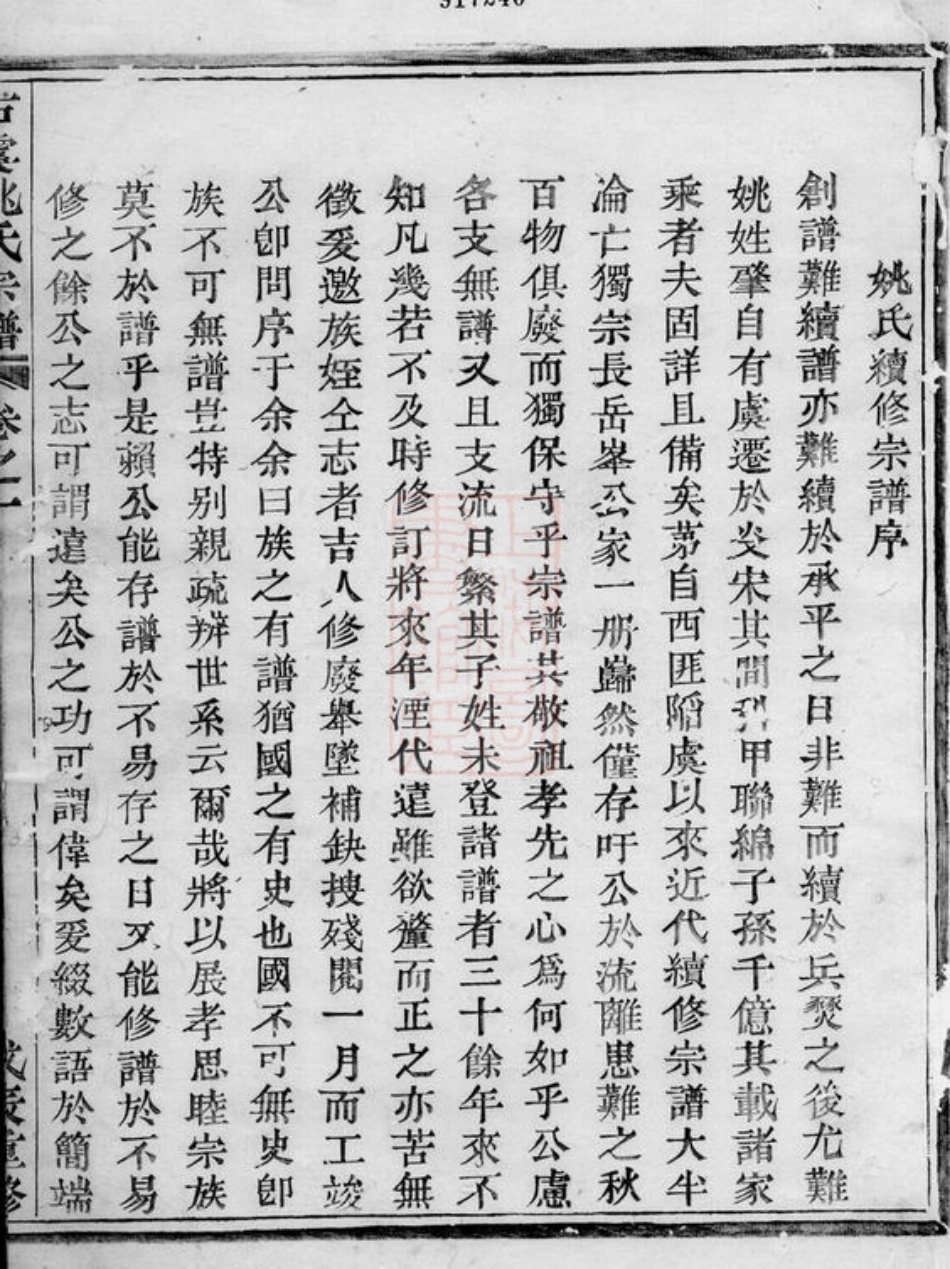 917246
姚氏續修宗譜序
創譜難續譜亦難續於承平之日非難而續於兵燹之後尤難
姚姓肇自有虞遷於炎宋其間科甲聯綿子孫千億其載諸家
乘者夫固詳且備矣苐自西匪陷虞以來近代續修宗譜大半
淪亡獨宗長岳峯公家一册巋然僅存吁公於流離患難之秋
百物俱廢而獨保守乎宗譜其敬祖孝先之心爲何如乎公慮
各支無譜又且支流日繁其子姓未登諸譜者三十餘年來不
知凡幾若不及時修訂將來年湮代遠雖欲釐而正之亦苦無
徵爰邀族姪仝志者吉人修廢舉墜補缺搜殘閱一月而工竣
公卽問序于余余曰族之有譜猶國之有史也國不可無史卽
族不可無譜豈特别親疏辨世系云爾哉將以展孝思睦宗族
莫不於譜乎是賴公能存譜於不易存之日又能修譜於不易
修之餘公之志可謂遠矣公之功可謂偉矣爰綴數語於簡端
古虞姚氏宗譜 卷之一